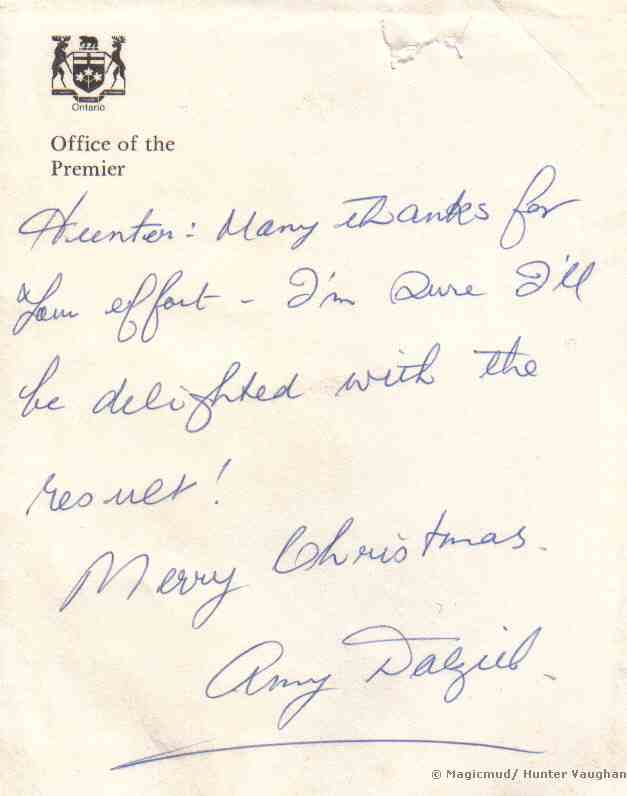 Ontario
Office of the
Premier
Hunter: Many thanks for
your effort - I'm sure I'll
be delighted with the
result!
Merry Christmas.
Amy Dalziel.
© Magicmud/ Hunter Vaughan